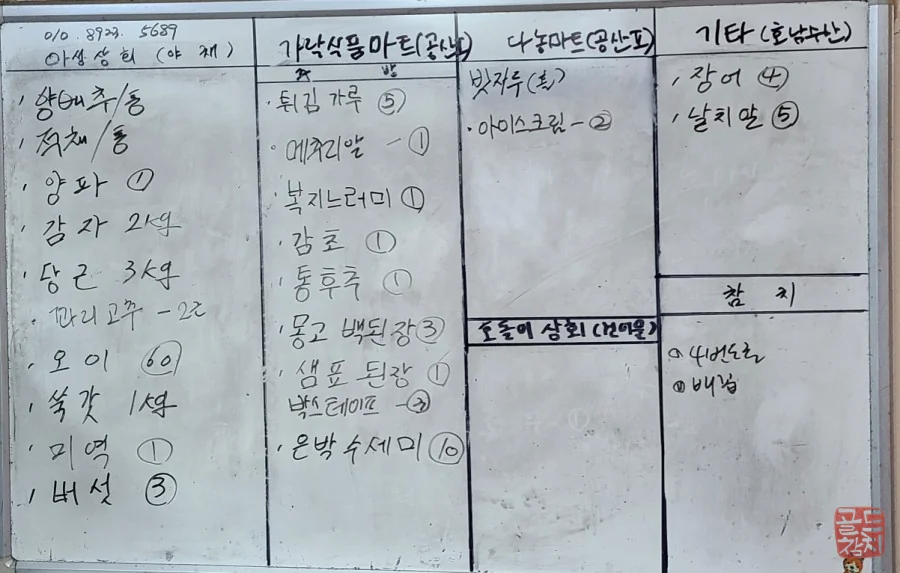 010. 8923. 5689
아성상회 (야채)
· 양배추/통
· 적채/통
· 양파 ①
· 감자 2kg
· 당근 3kg
· 꽈리고추 - 2근
· 오이 60
· 쑥갓 1kg
· 미역 ①
· 버섯 ③
가락식품마트(공산품)
· 튀김가루 ⑤
· 메추리알 - ①
· 복지느러미 ①
· 감초 ①
· 통후추 ①
· 몽고 백된장 ③
· 샘표 된장 ①
박스테이프 - ③
· 은박 수세미 ⑩
다농마트(공산품)
빗자루(홀)
· 아이스크림 - ②
오돌이 상회 (건어물)
기타 (호남수산)
· 장어 ④
· 날치알 ⑤
참치
① 4번도로
② 배꼽
골드
참치